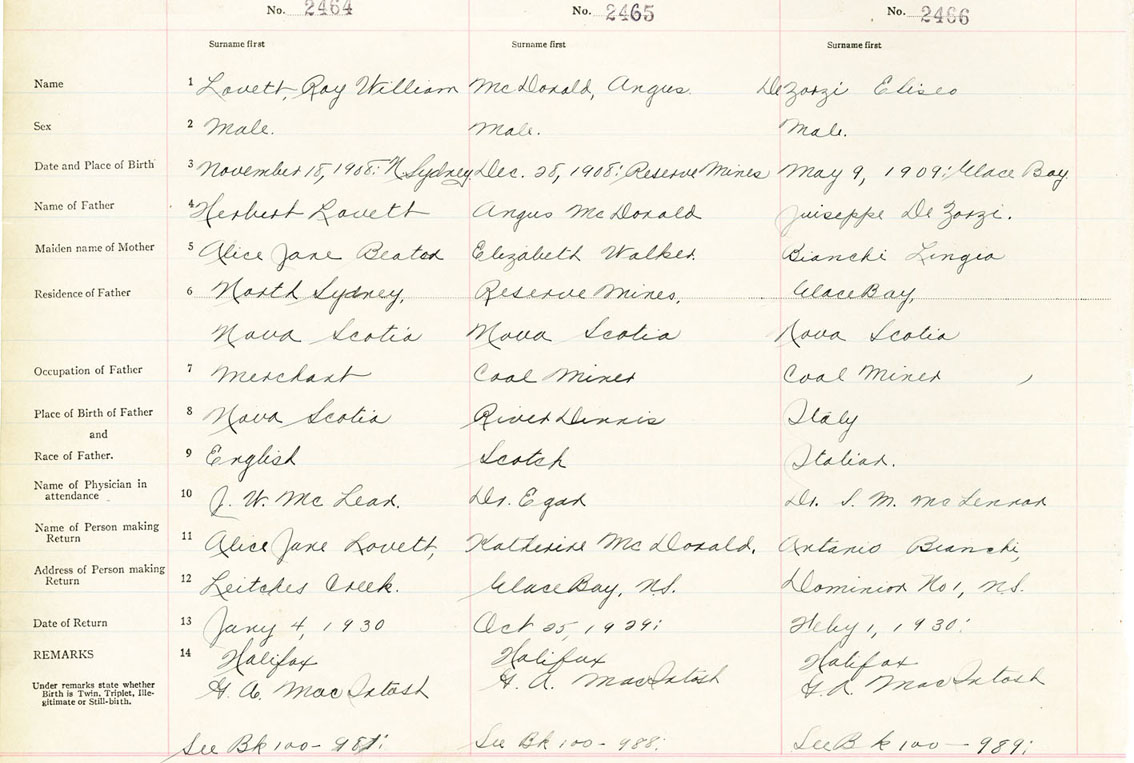 No. 2464 No. 2465 No. 2466
Surname first Surname first Surname first
Name 1 Lovett, Roy William McDonald, Angus. De Zorzi Eliseo
Sex 2 Male. Male. Male.
Date and Place of Birth 3 November 18, 1908: N. Sydney Dec. 28, 1908: Reserve Mines May 9, 1909: Glace Bay
Name of Father 4 Herbert Lovett Angus McDonald Juiseppe De Zorzi.
Maiden name of Mother 5 Alice Jane Beaton Elizabeth Walker Bianchi Lingia
Residence of Father 6 North Sydney, Reserve Mines, Glace Bay,
Nova Scotia Nova Scotia Nova Scotia
Occupation of Father 7 Merchant Coal Miner Coal Miner
Place of Birth of Father 8 Nova Scotia River Dennis Italy
and
Race of Father. 9 English Scotch Italian.
Name of Physician in
attendance 10 J. W. McLean. Dr. Egan Dr. S. M. McLennan
Name of Person making
Return 11 Alice Jane Lovett, Katherine McDonald, Antonio Bianchi,
Address of Person making
Return 12 Leitches Creek. Glace Bay, N.S. Dominion No 1, N.S.
Date of Return 13 Jany 4, 1930 Oct 25, 1929: Feby 1, 1930:
REMARKS 14 Halifax Halifax Halifax
Under remarks state whether
Birth is Twin, Triplet, Ille-
gitimate or Still-birth.
G. A. MacIntosh G. A. MacIntosh G. A. MacIntosh
See Bk 100 - 987: See Bk 100 - 988: See Bk 100 - 989: